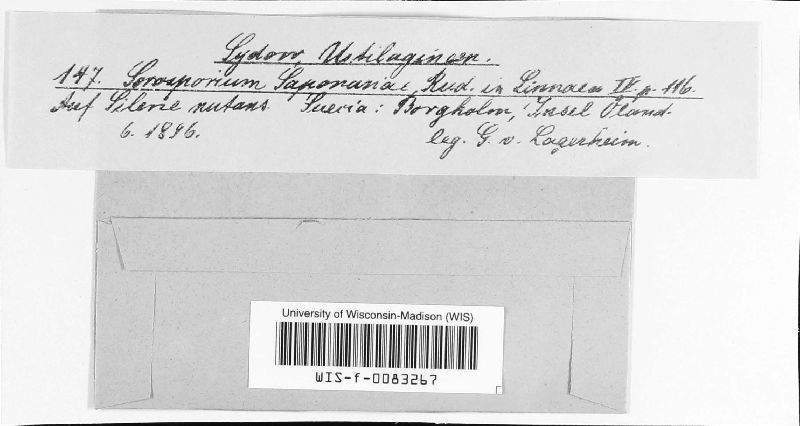 Sydow, Ustilagineen.
147. Sorosporium Saponariae, Rud. in Linnaea IV p. 116.
Auf Silene nutans. Suecia: Borgholm, Insel Öland.
6. 1896. leg. G. v. Lagerheim.
University of Wisconsin-Madison (WIS)
WIS-f-0083267